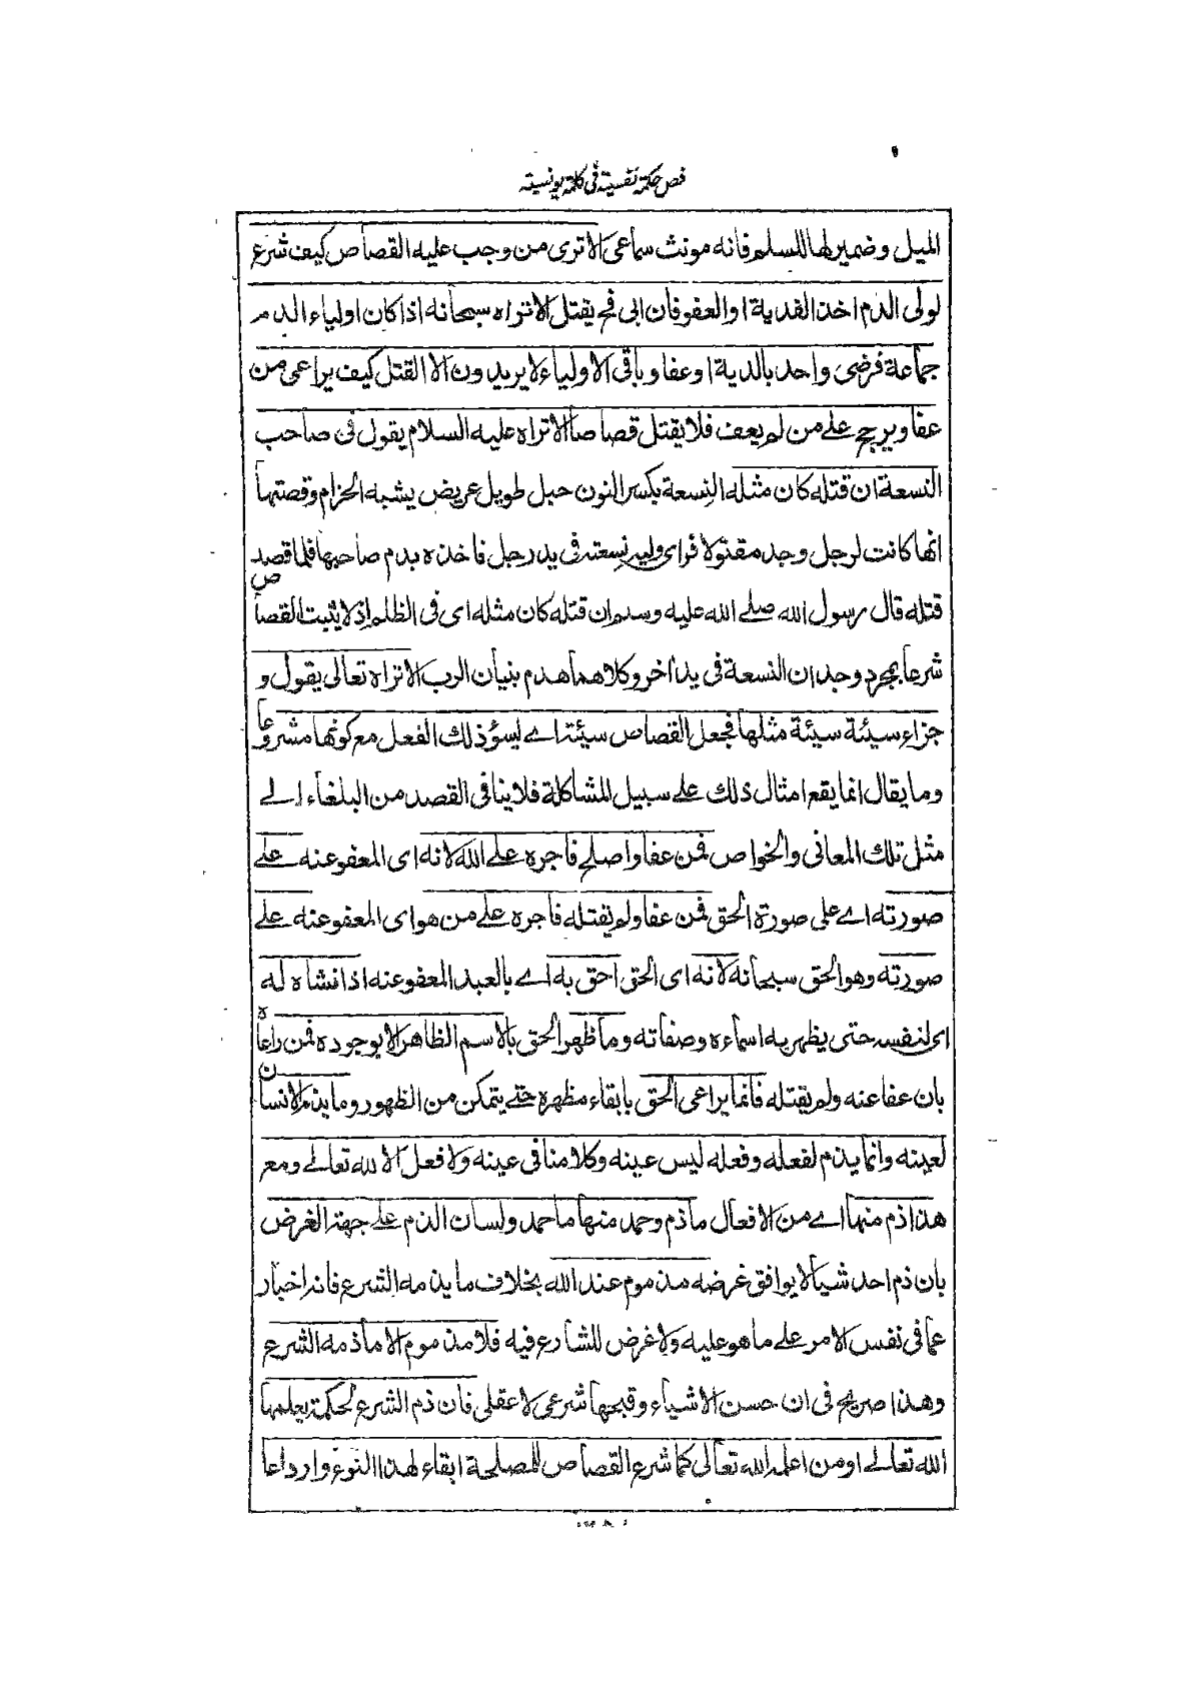 فص حكمة نفسية فى كلمة يونسية
الميل وضمير لها للسلم فانه مونث سماعى الا ترى من وجب عليه القصاص كيف شرع
لولى الدم اخذ الفدية او العفو فان ابى فح يقتل الا تراه سبحانه اذا كان اولياء الدم
جماعة فرضى واحد بالدية او عفا وباقى الاولياء لا يريدون الا القتل كيف يراعى من
عفا ويرجح على من لم يعف فلا يقتل قصاصا الا تراه عليه السلام يقول فى صاحب
النسعة ان قتله كان مثله النسعة بكسر النون حبل طويل عريض يشبه الحزام وقصتها
انها كانت لرجل وجد مقتولا فراى وليه نسعته فى يد رجل فاخذه بدم صاحبها فلما قصد
قتله قال رسول الله صلے الله عليه وسلم ان قتله كان مثله اى فى الظلم اذ لا يثبت القصاص
شرعا بمجرد وجدان النسعة فى يد اخر وكلاهما هدم بنيان الرب الا تراه تعالى يقول و
جزاء سيئة سيئة مثلها فجعل القصاص سيئة اے ليسؤ ذلك الفعل مع كونها مشروعا
وما يقال انما يقع امثال ذلك علے سبيل المشاكلة فلا ينافى القصد من البلغاء الے
مثل تلك المعانى والخواص فمن عفا واصلح فاجره علے الله لانه اى المعفو عنه علے
صورته اے على صورة الحق فمن عفا ولم يقتله فاجره علے من هو اى المعفو عنه علے
صورته وهو الحق سبحانه لانه اى الحق احق به اے بالعبد المعفو عنه اذ انشاه له
اى لنفسه حتى يظهر به اسماءه وصفاته وما ظهر الحق بالاسم الظاهر الا بوجوده فمن راعاه
بان عفا عنه ولم يقتله فانما يراعى الحق بابقاء مظهره حتے يتمكن من الظهور وما يذم الانسان
لعينه وانما يذم لفعله وفعله ليس عينه وكلامنا فى عينه ولا فعل الا لله تعالے ومع
هذا ذم منها اے من الافعال ما ذم وحمد منها ما حمد ولسان الذم علے جهة الغرض
بان ذم احد شيئا لا يوافق غرضه مذموم عند الله بخلاف ما يذمه الشرع فانه اخبار
عما فى نفس الامر علے ما هو عليه ولا غرض للشارع فيه فلا مذموم الا ما ذمه الشرع
وهذا صريح فى ان حسن الاشياء وقبحها شرعى لا عقلى فان ذم الشرع لحكمة يعلمها
الله تعالے او من اعلمه الله تعالى كما شرع القصاص للمصلحة ابقاء لهذا النوع وارداعا